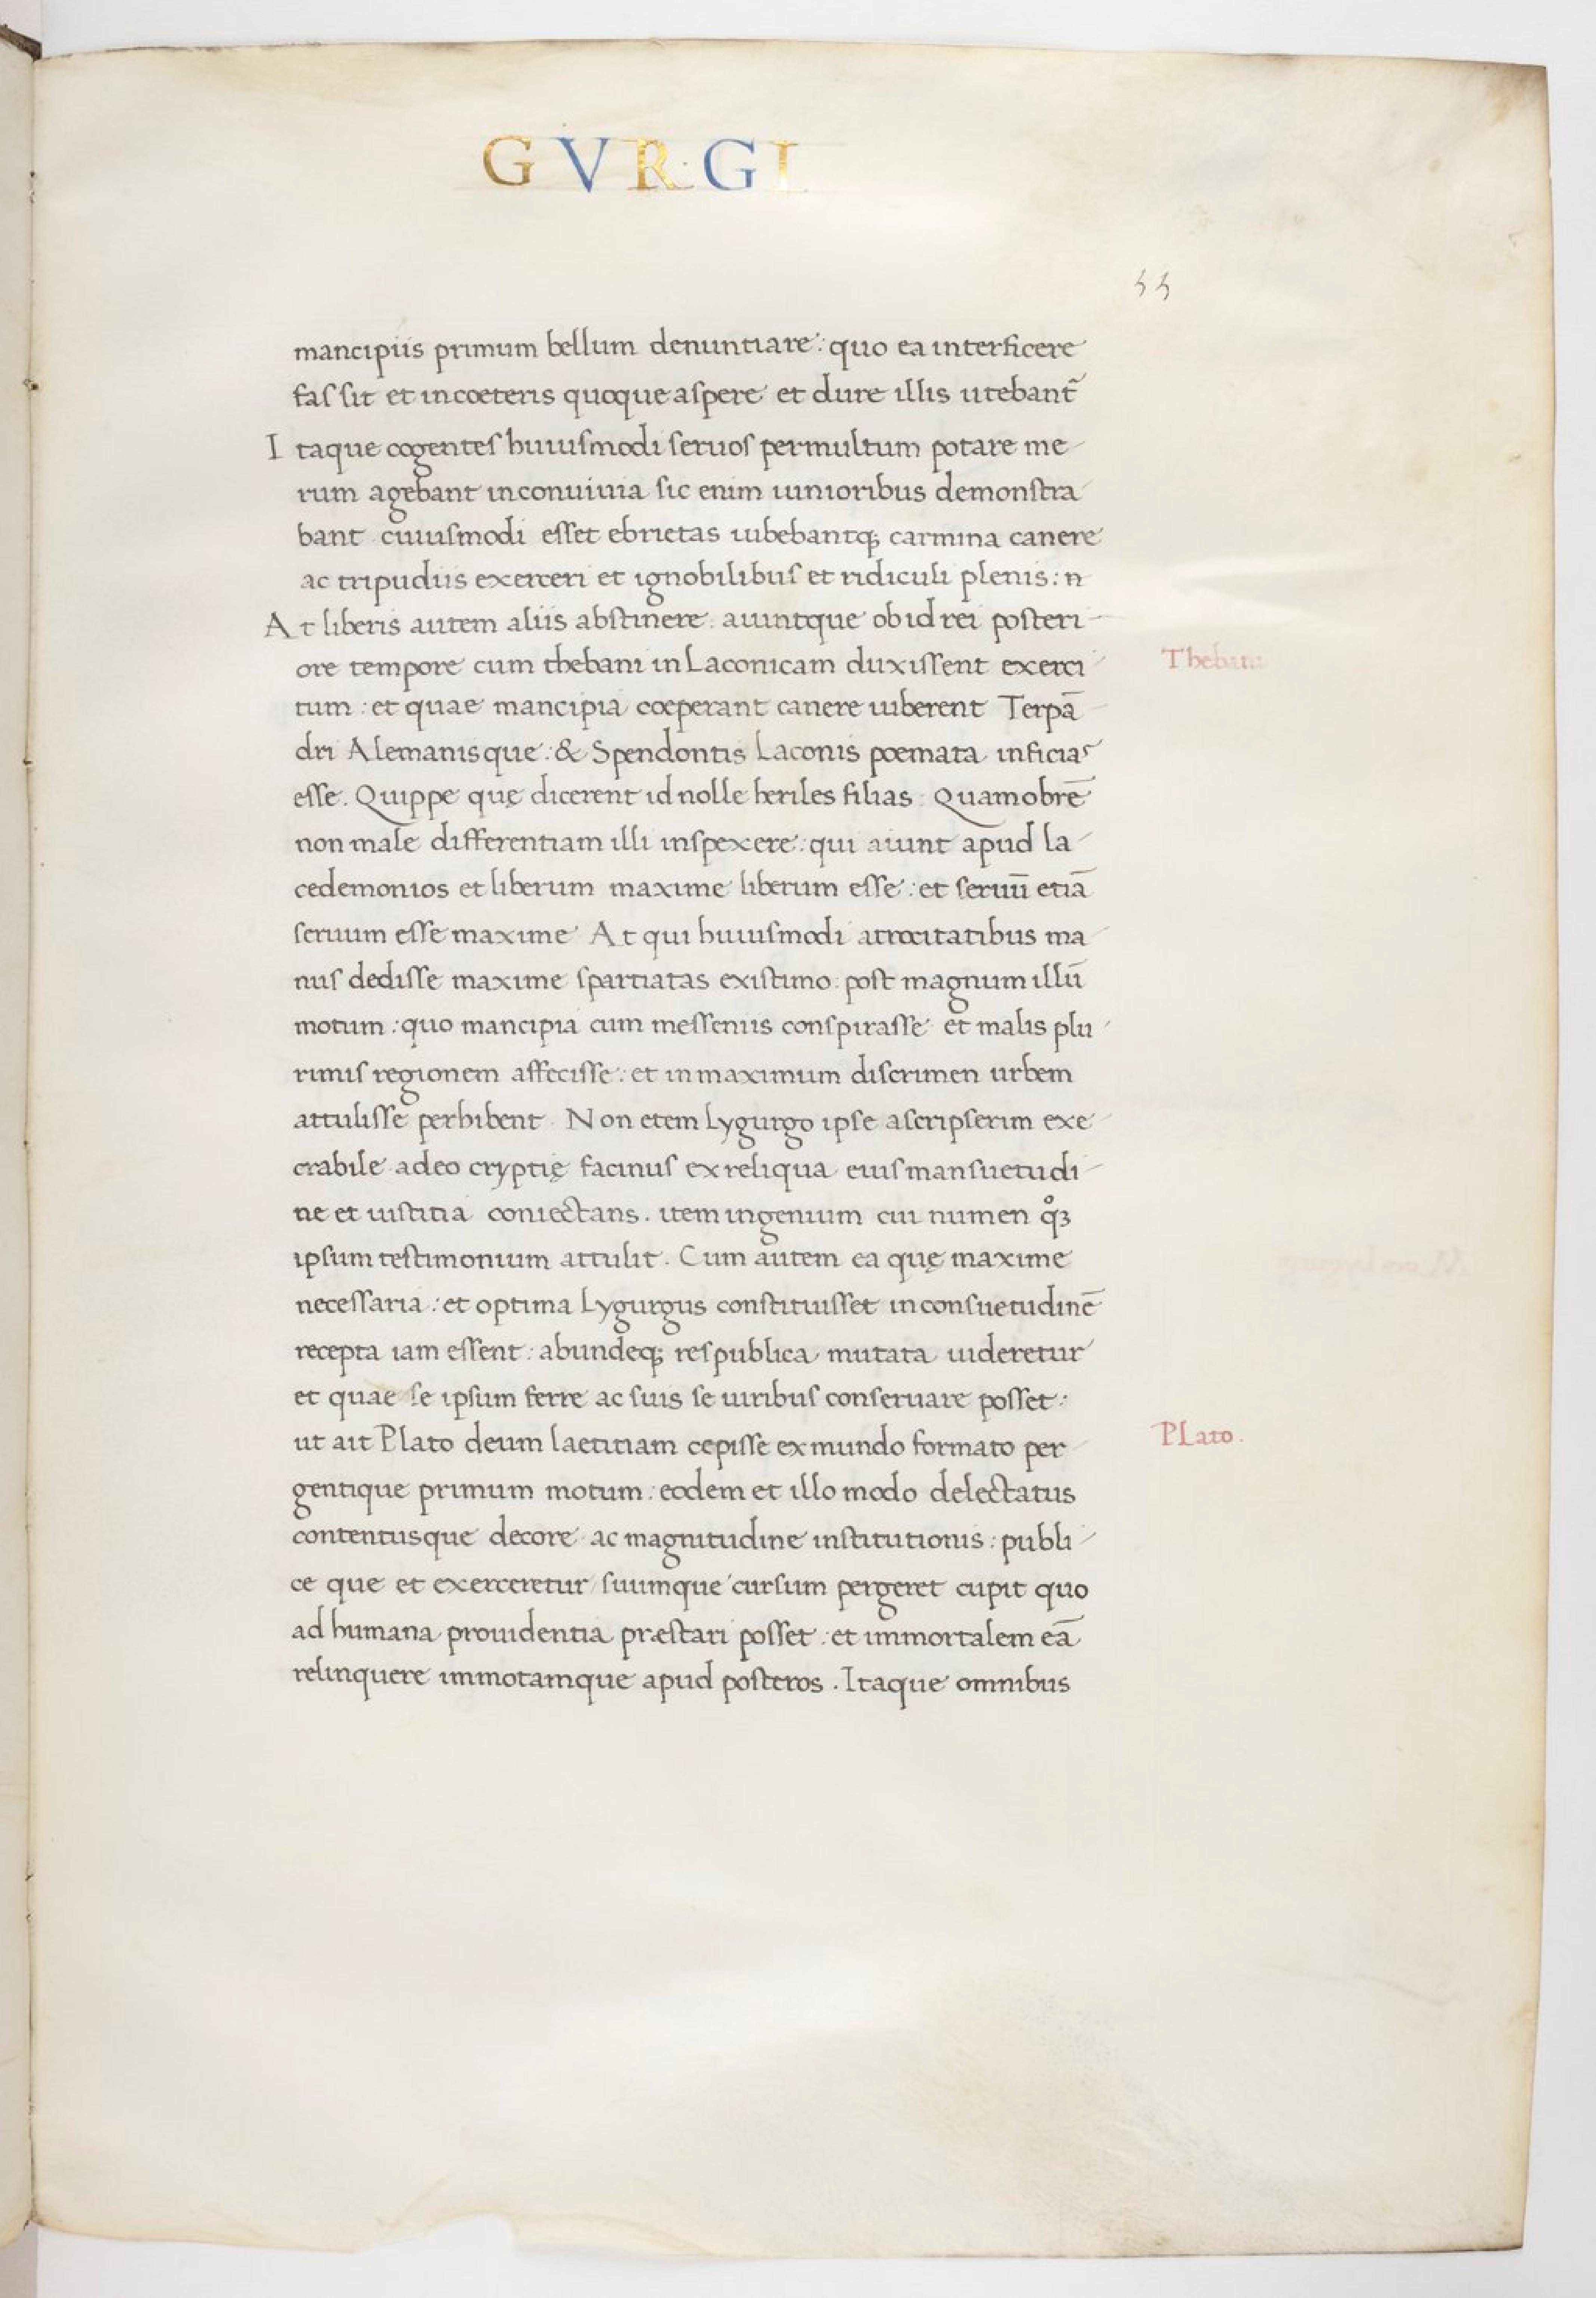 GVRGI
55
mancipiis primum bellum denuntiare: quo ea interficere
fas sit et in coeteris quoque aspere et dure illis utebant̃
Itaque cogentes huiusmodi seruos permultum potare me
rum agebant in conuiuia sic enim iunioribus demonstra
bant cuiusmodi esset ebrietas iubebantq; carmina canere
ac tripudiis exerceri et ignobilibus et ridiculi plenis: n
At liberis autem aliis abstinere aiuntque ob id rei posteri
ore tempore cum thebani in Laconicam duxissent exerci
Thebani
tum: et quae mancipia coeperant canere iuberent Terpā
dri Alemanisque: & Spendontis Laconis poemata inficias
esse. Quippe quę dicerent id nolle heriles filias: Quamobrē
non male differentiam illi inspexere: qui aiunt apud la
cedemonios et liberum maxime liberum esse: et seruū etiā
seruum esse maxime At qui huiusmodi atrocitatibus ma
nus dedisse maxime spartiatas existimo: post magnum illū
motum: quo mancipia cum messeniis conspirasse et malis plu
rimis regionem affecisse: et in maximum discrimen urbem
attulisse perhibent. Non etem Lygurgo ipse ascripserim exe
crabile adeo cryptię facinus ex reliqua eius mansuetudi
ne et iustitia coniectans. item ingenium cui numen qͦꝫ
ipsum testimonium attulit. Cum autem ea quę maxime
necessaria: et optima Lygurgus constituisset in consuetudinē
recepta iam essent: abundeq; respublica mutata uideretur
et quae se ipsum ferre ac suis se uiribus conseruare posset:
ut ait Plato deum laetitiam cepisse ex mundo formato per
PLato.
gentique primum motum: eodem et illo modo delectatus
contentusque decore ac magnitudine institutionis: publi
ce que et exerceretur suumque cursum pergeret cupit quo
ad humana prouidentia præstari posset: et immortalem eā
relinquere immotamque apud posteros. Itaque omnibus